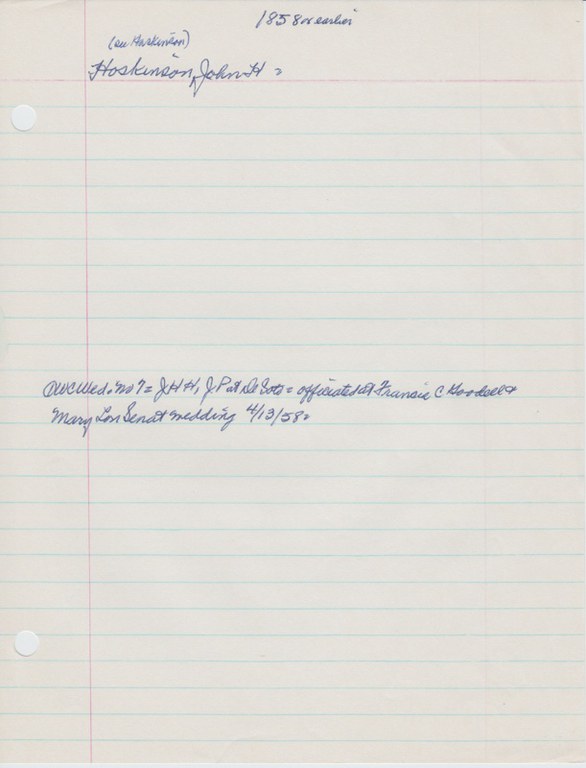 1858 or earlier
(see Hoskinson)
Hoskinson, John H =
DWC Wed. No 7 = J H H, J. P at De Soto = officiated at Francis C Goodell &
Mary Senat wedding 4/13/58 =